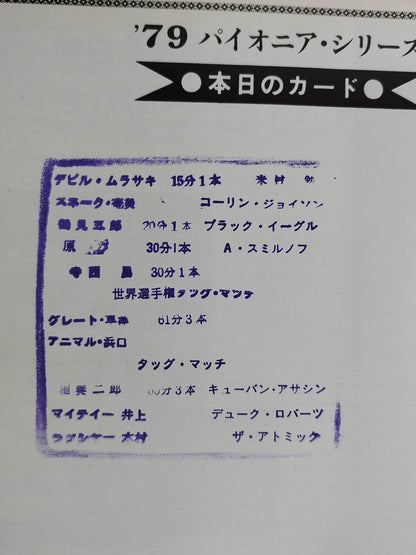 '79 パイオニア・シリーズ
●本日のカード●
デビル・ムラサキ 15分1本 米村
スネーク・奄美 コーリン・ジョイソン
鶴見五郎 20分1本 ブラック・イーグル
原 30分1本 A・スミルノフ
寺西 勇 30分1本
世界選手権タッグ・マッチ
グレート・草津 61分3本
アニマル・浜口
タッグ・マッチ
稲妻二郎 60分3本 キューバン・アサシン
マイティー 井上 デューク・ロバーツ
ラッシャー 木村 ザ・アトミック